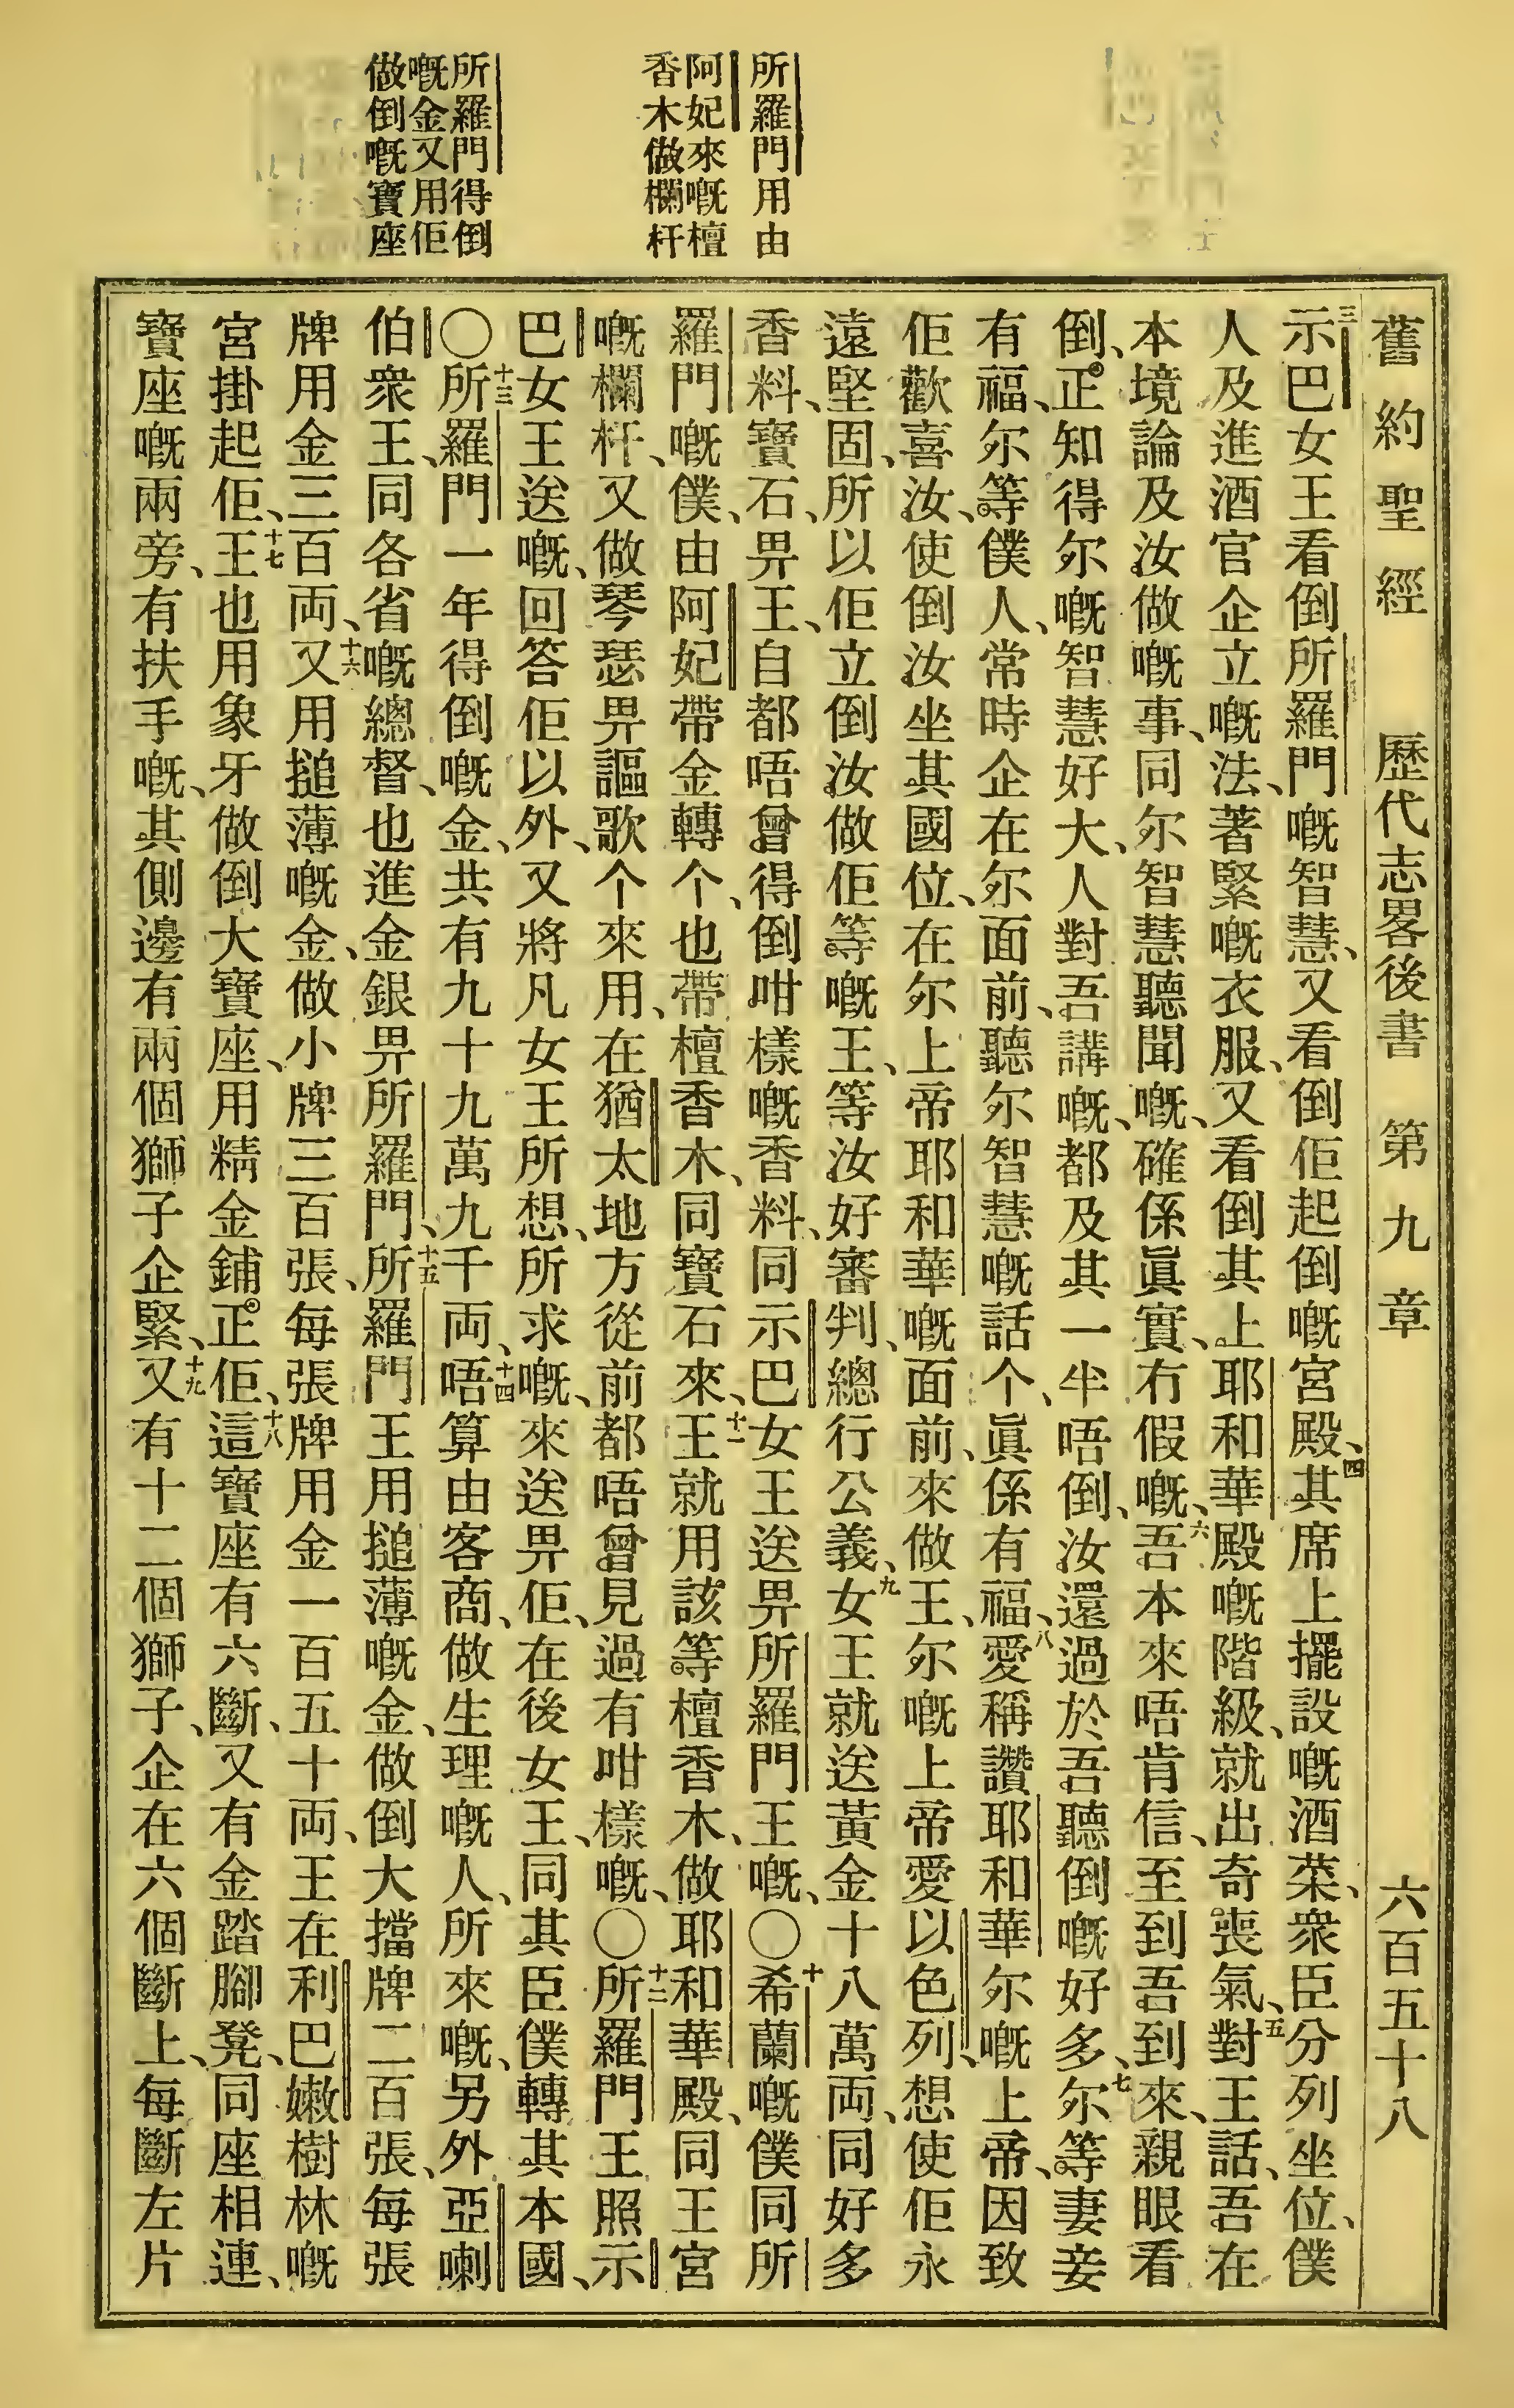 舊約聖經　歷代志畧後書　第九章　六百五十八
所羅門用由
阿妃來嘅檀
香木做欄杆
所羅門得倒
嘅金又用佢
做倒嘅寶座
三示巴女王看倒所羅門嘅智慧、又看倒佢起倒嘅宮殿、四其席上擺設嘅酒菜、衆臣分列坐位、僕
人及進酒官企立嘅法、著緊嘅衣服、又看倒其上耶和華殿嘅階級、就出奇喪氣、五對王話、吾在
本境論及汝做嘅事、同尔智慧聽聞嘅、確係眞實、冇假嘅、六吾本來唔肯信、至到吾到來、親眼看
倒、正知得尔嘅智慧好大、人對吾講嘅、都及其一半唔倒、汝還過於吾聽倒嘅好多、七尔等妻妾
有福、尔等僕人、常時企在尔面前、聽尔智慧嘅話个、眞係有福、八愛稱讚耶和華尔嘅上帝、因致
佢歡喜汝、使倒汝坐其國位、在尔上帝耶和華嘅面前、來做王、尔嘅上帝愛以色列、想使佢永
遠堅固、所以佢立倒汝做佢等嘅王、等汝好審判、總行公義、九女王就送黃金十八萬両、同好多
香料、寶石、畀王、自都唔曾得倒咁樣嘅香料、同示巴女王送畀所羅門王嘅、〇十希蘭嘅僕同所
羅門嘅僕、由阿妃帶金轉个、也帶檀香木、同寶石來、十一王就用該等檀香木、做耶和華殿、同王宮
嘅欄杆、又做琴瑟畀謳歌个來用、在猶太地方從前都唔曾見過有咁樣嘅、〇十二所羅門王照示
巴女王送嘅、回答佢以外、又將凡女王所想、所求嘅、來送畀佢、在後女王、同其臣僕轉其本國、
〇十三所羅門一年得倒嘅金、共有九十九萬九千両、十四唔算由客商、做生理嘅人、所來嘅、另外亞喇
伯衆王、同各省嘅總督、也進金銀畀所羅門、十五所羅門王用搥薄嘅金、做倒大擋牌二百張、每張
牌用金三百両、十六又用搥薄嘅金、做小牌三百張、每張牌用金一百五十両、王在利巴嫩樹林嘅
宮掛起佢、十七王也用象牙做倒大寶座、用精金鋪正佢、十八這寶座有六斷、又有金踏腳凳、同座相連、
寶座嘅兩旁、有扶手嘅、其側邊有兩個獅子企緊、十九又有十二個獅子、企在六個斷上、每斷左片